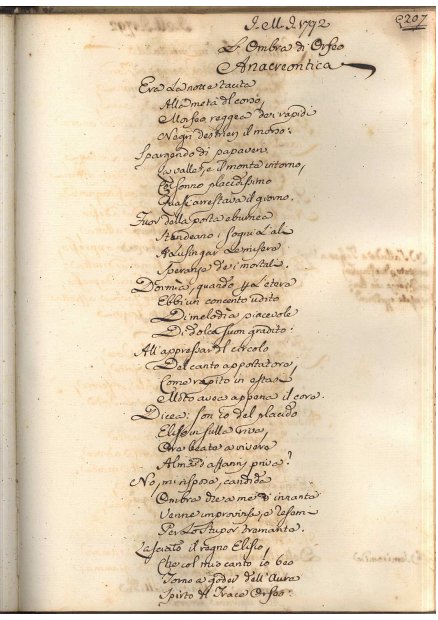 207
J. M. J. 1792
L'Ombra di Orfeo
Anacreontica
Era la notte tacita
Alla metà del corso,
Morfeo reggea dei rapidi
Negri destrieri il morso:
Spargendo di papaveri
La valle, e il monte intorno,
Col sonno placidissimo
Quasi arrestava il giorno.
Fuor della porta eburnea
Stendeano i sogni l'ale
A lusingar le misere
Speranze de' mortali.
Dormia, quando per l'etera
Ebbi un concento udito
Di melodia piacevole
Di dolce suon gradito:
All'appressar il circolo
Del canto apportatora
Come rapito in estasi
Misto avea appena il core.
Dicea: son io del placido
Eliso in sulla riva,
Ove beato a vivere
Alma d'affanni priva?
No, mi rispose, candida
Ombra che a me d'innante
Venne improvvisa, e resemi
Per lo stupor tremante.
Lasciato il regno Elisio,
Che col mio canto io beo
Torno a goder dell'Aura
Spirto del Trace Orfeo: